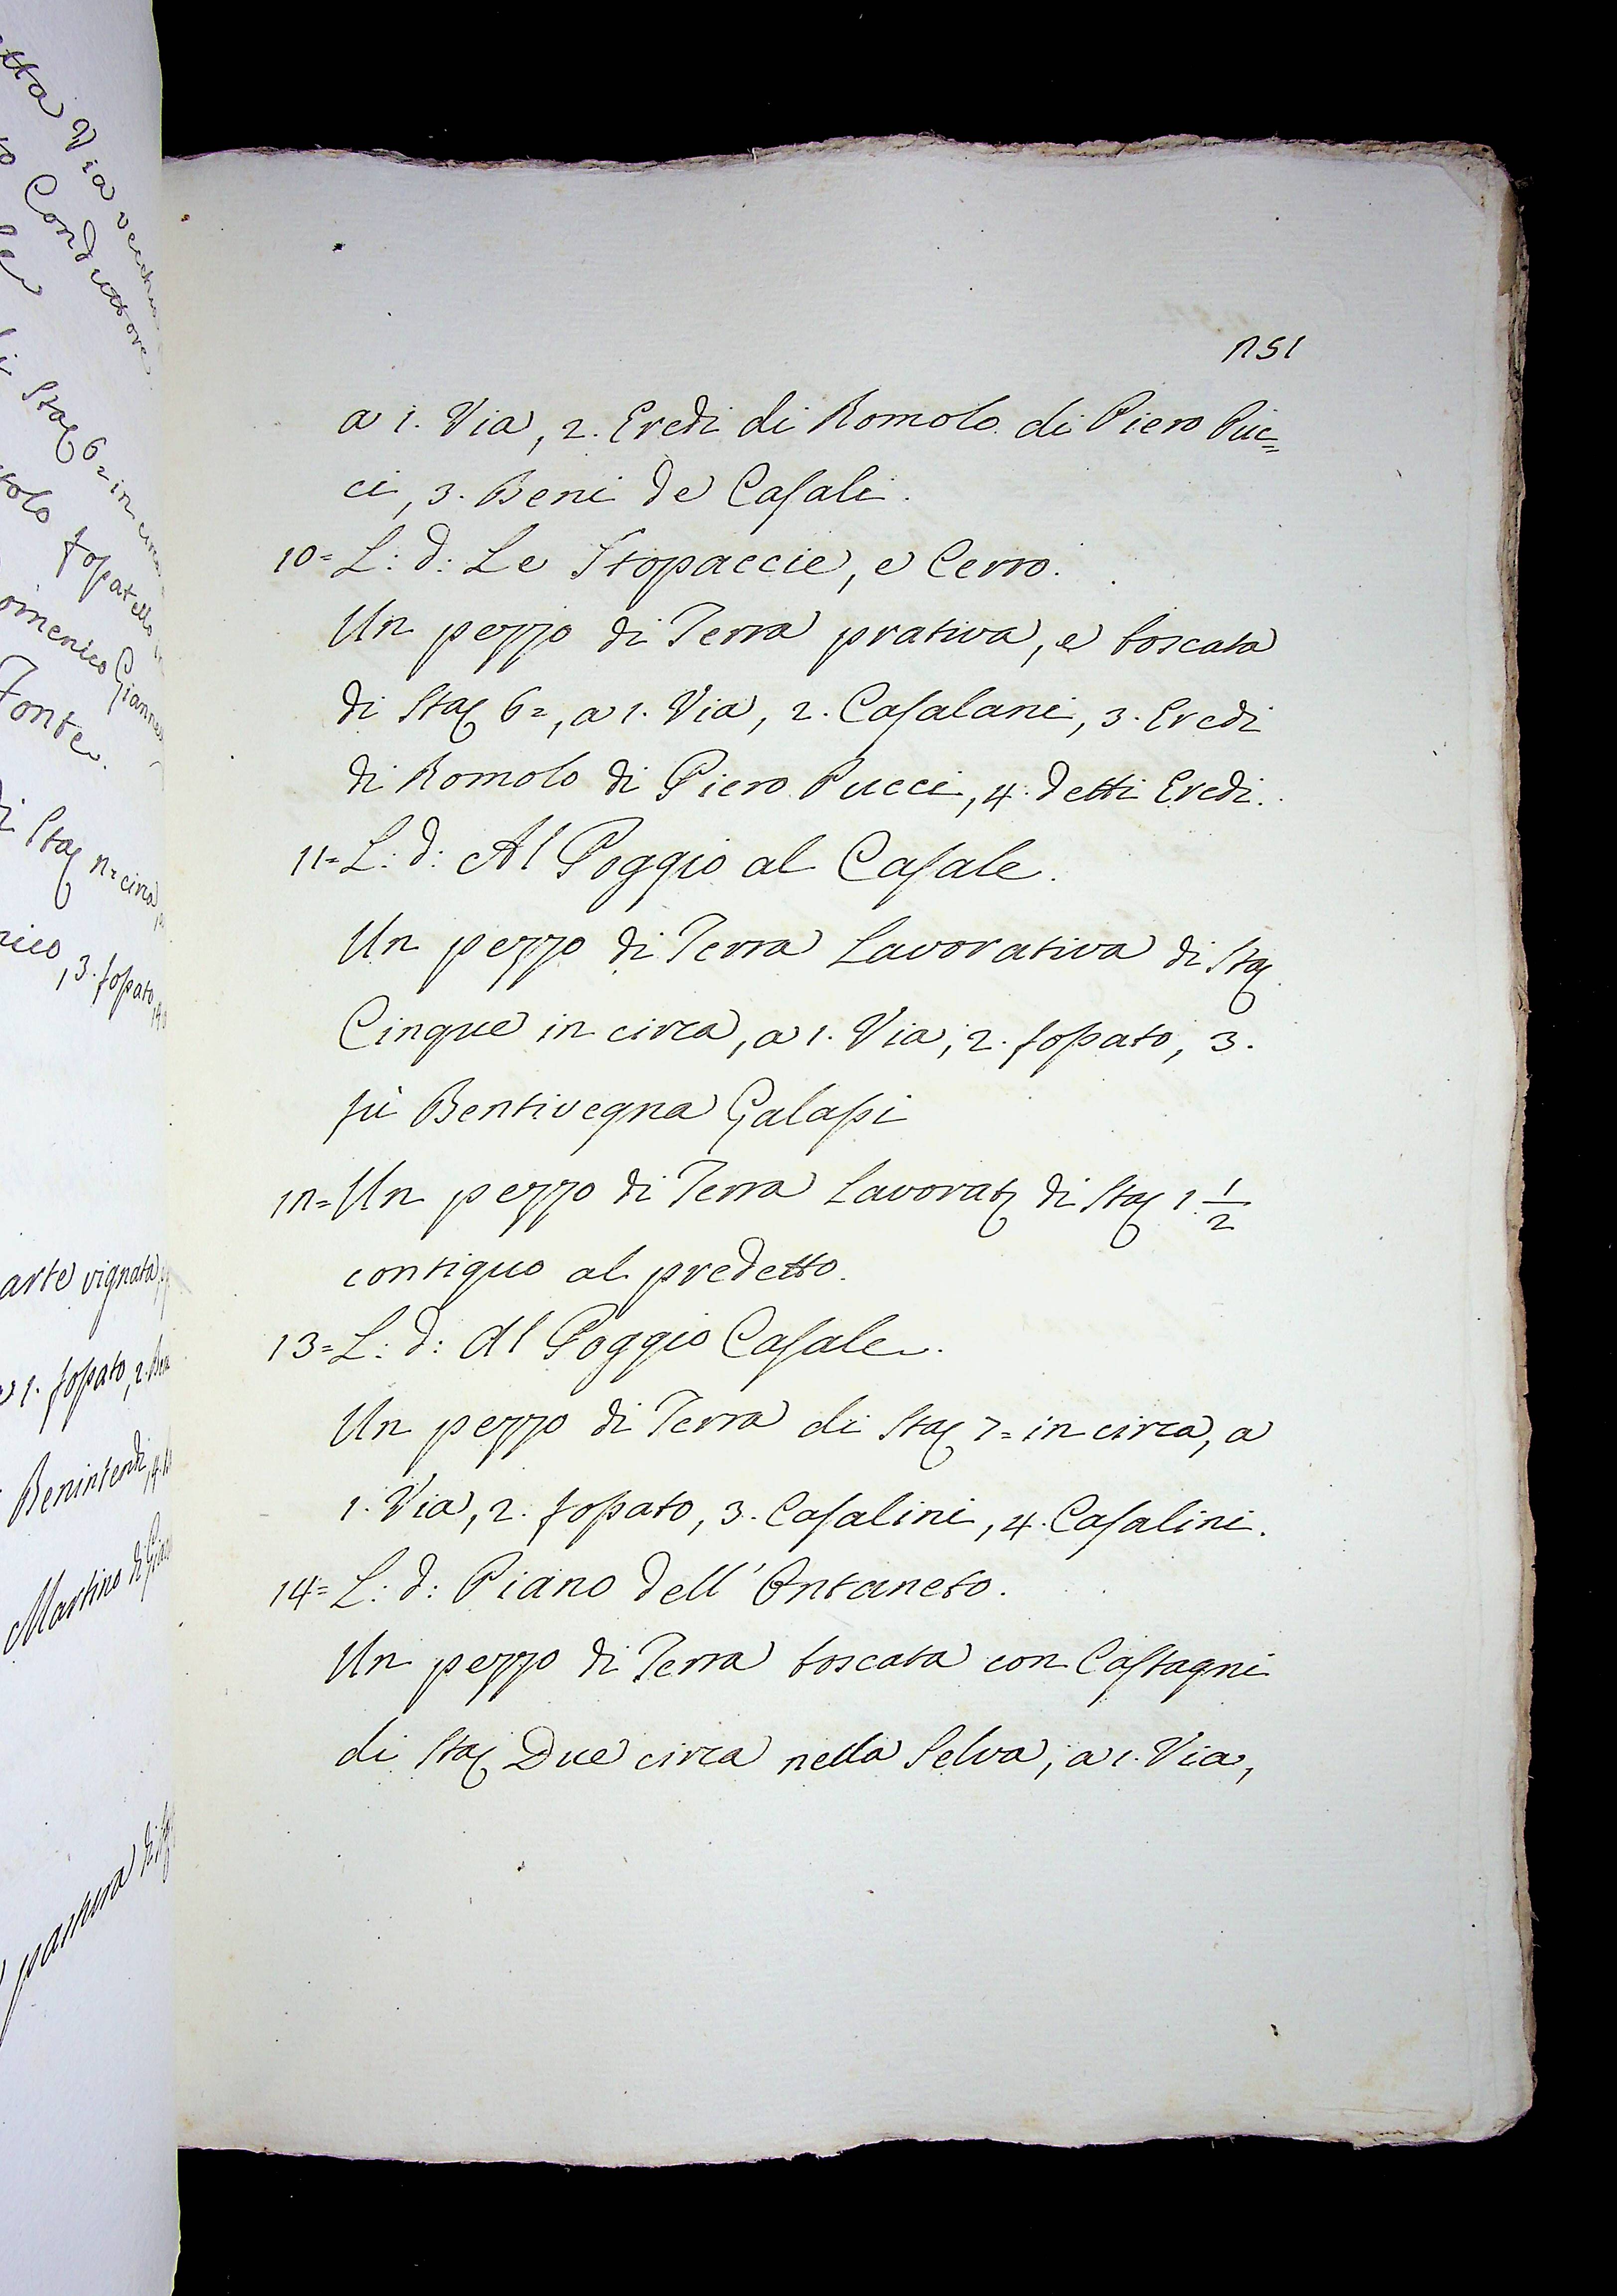 tta Via vecchia
Conduttore
Staj 6= in circa
fossatello
omenico Gianne
Fonte.
di Staj 12= circa,
nico, 3. fossato,
arte vignata,
1. fossato, 2. Beni
Benintendi,
Martino di
pastura di
251
a 1. Via, 2. Eredi di Romolo di Piero Puc=
ci, 3. Beni de Casali.
10= L: d: Le Stopaccie, e Cerro.
Un pezzo di Terra prativa, e boscata
di Staj 6=, a 1. Via, 2. Casalani, 3. Eredi
di Romolo di Piero Pucci, 4. detti Eredi.
11= L: d: Al Poggio al Casale.
Un pezzo di Terra Lavorativa di Staj
Cinque in circa, a 1. Via, 2. fossato, 3.
fù Bentivegna Galassi
12= Un pezzo di Terra Lavorat di Staj 1. 1/2
contiguo al predetto.
13= L: d: Al Poggio Casale.
Un pezzo di Terra di Staj 7= in circa, a
1. Via, 2. fossato, 3. Casalini, 4. Casalini.
14= L: d: Piano dell' Ontaneto.
Un pezzo di Terra boscata con Castagni
di Staj Due circa nella Selva, a 1. Via,